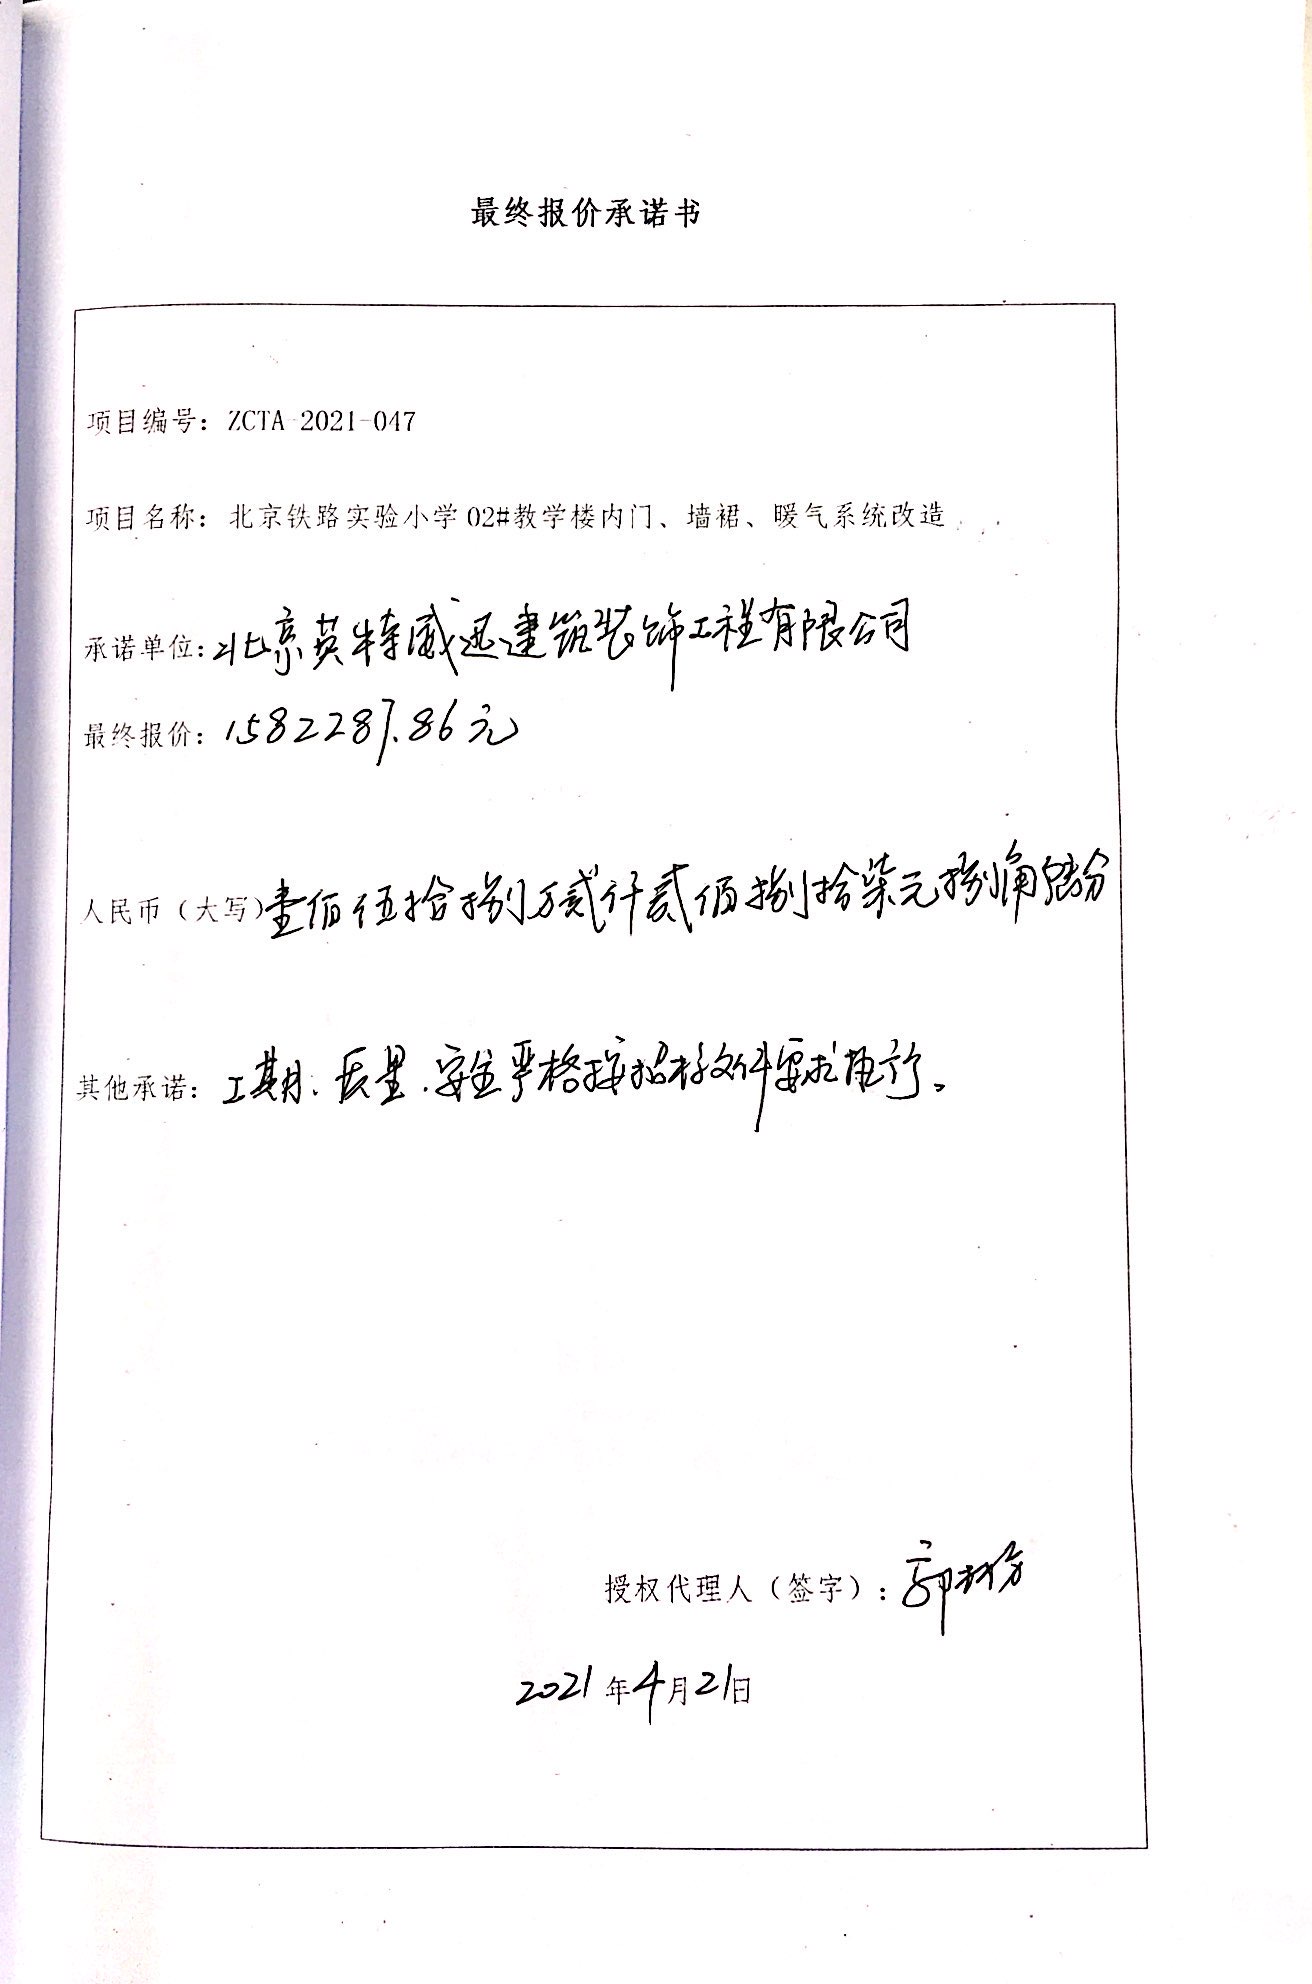 最终报价承诺书
项目编号：ZCTA-2021-047
项目名称：北京铁路实验小学02#教学楼内门、墙裙、暖气系统改造
承诺单位：北京英特威迅建筑装饰工程有限公司
最终报价：1582287.86元
人民币（大写）壹佰伍拾捌万贰仟贰佰捌拾柒元捌角陆分
其他承诺：工期、质量、安全严格按招标文件要求执行。
授权代理人（签字）：郭
2021年4月21日